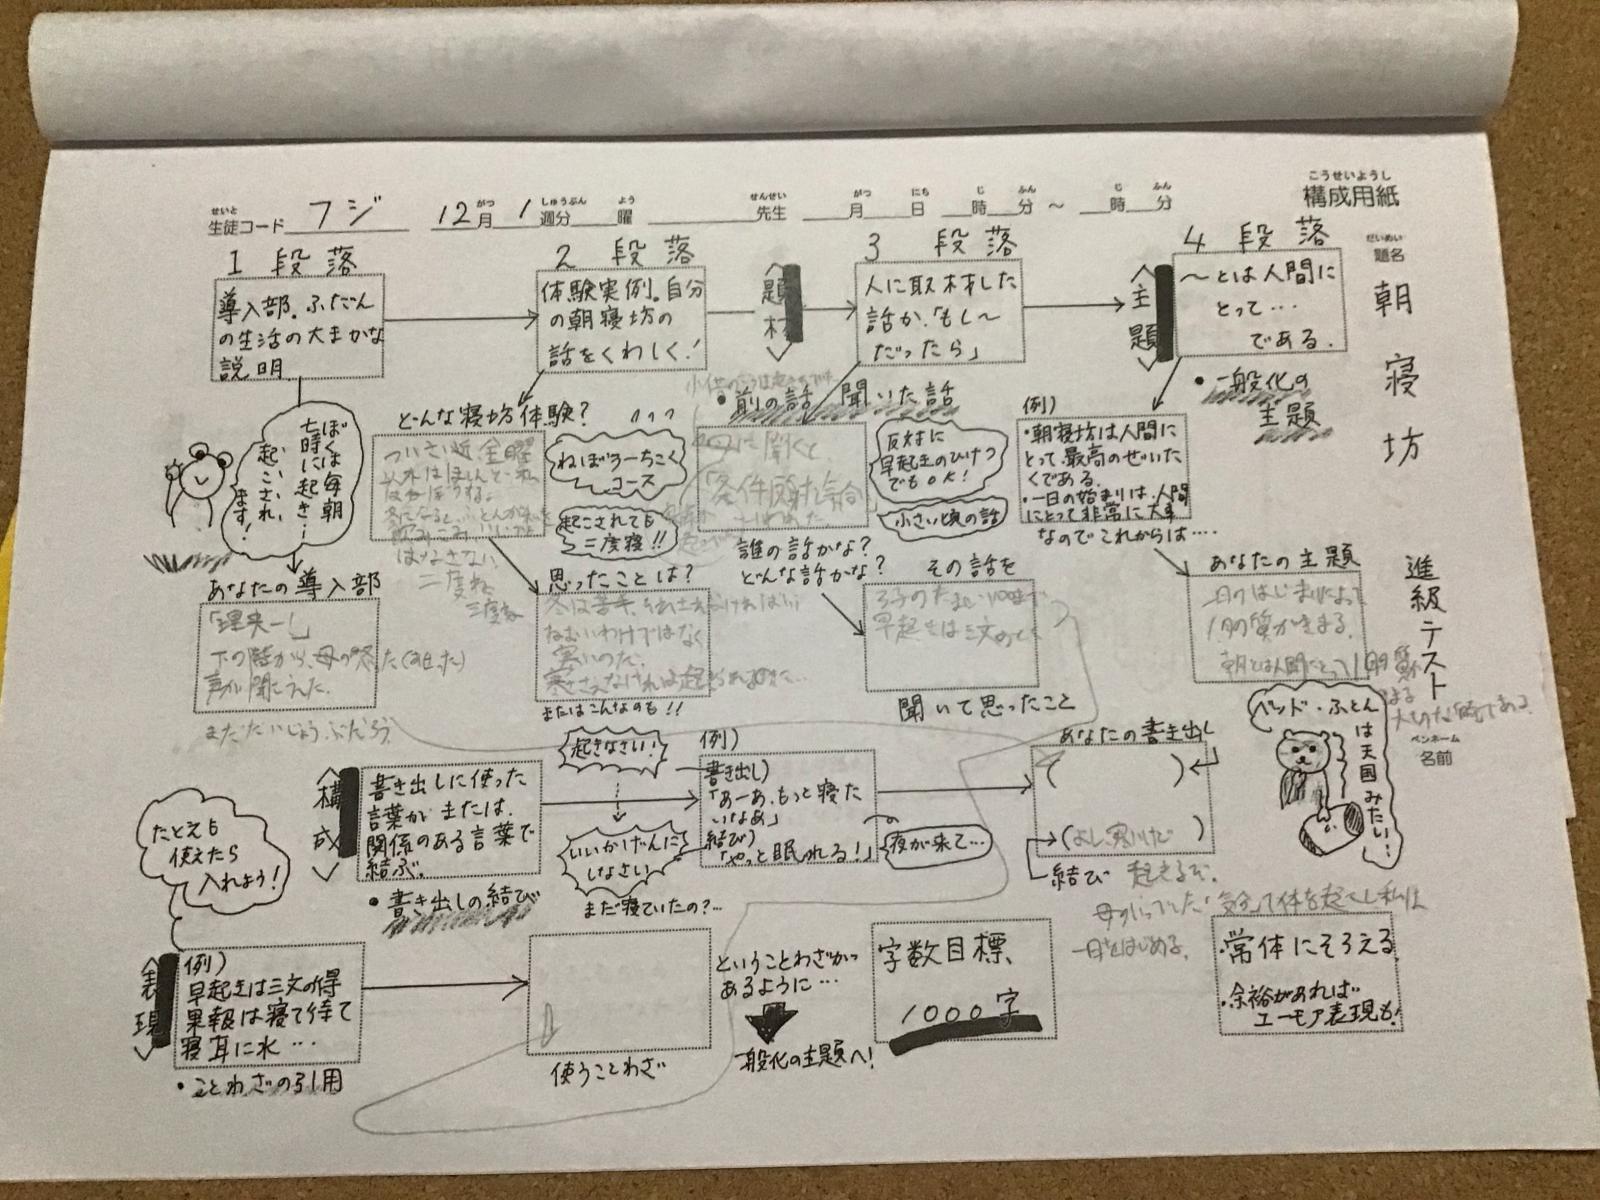 こうせいようし
構成用紙
せいと
生徒コード フジ
がつ しゅうぶん よう せんせい がつ にち じ ふん じ ふん
12月 1週分 曜 先生 月 日 時 分 ~ 時 分
だいめい
題名
朝寝坊
進級テスト
ペンネーム
名前
1 段落
導入部。ふだん
の生活の大まかな
説明
2 段落
体験実例。自分
の朝寝坊の
話をくわしく!
題材
3 段落
人に取材した
話か、「もし~
だったら」
主題
4 段落
~とは人間に
とって…
である。
・一般化の
主題
ぼくは毎朝
七時に起き…
起こされ
ます!
どんな寝坊体験?
つい最近金曜
ねぼうーちこく
コース
起こされても
二度寝!!
はなさない
二度ね
・前の話 聞いた話
母に聞くと、
反対に
早起きのひけつ
でもOK!
小さい頃の話
誰の話かな?
どんな話かな?
例)
・朝寝坊は人間に
とって、最高のぜいた
くである。
・一日の始まりは、人間
にとって非常に大事
なのでこれからは…
あなたの導入部
下の階から、母の
声が聞こえた。
思ったことは?
ねむいわけではなく
寒いのだ。
またはこんなのも!!
その話を
早起きは三文の
聞いて思ったこと
あなたの主題
一日のはじまりによって
1日の質が決まる。
構成
書き出しに使った
言葉が または、
関係のある言葉で
結ぶ。
・書き出しの結び
起きなさい!
いいかげんに
しなさい
まだ寝ていたの?…
例)
書き出し)
「あーあ、もっと寝た
いなあ」
結び)
「やっと眠れる!」
夜が来て…
あなたの書き出し
( )
(よし、寒いけど )
結び 起きるぞ。
一日をはじめる。
ベッド・ふとん
は天国みたい…
たとえも
使えたら
入れよう!
表現
例)
早起きは三文の得
果報は寝て待て
寝耳に水…
・ことわざの引用
使うことわざ
ということわざが
あるように…
一般化の主題へ!
字数目標、
1000字
・常体にそろえる。
・余裕があれば
ユーモア表現も!